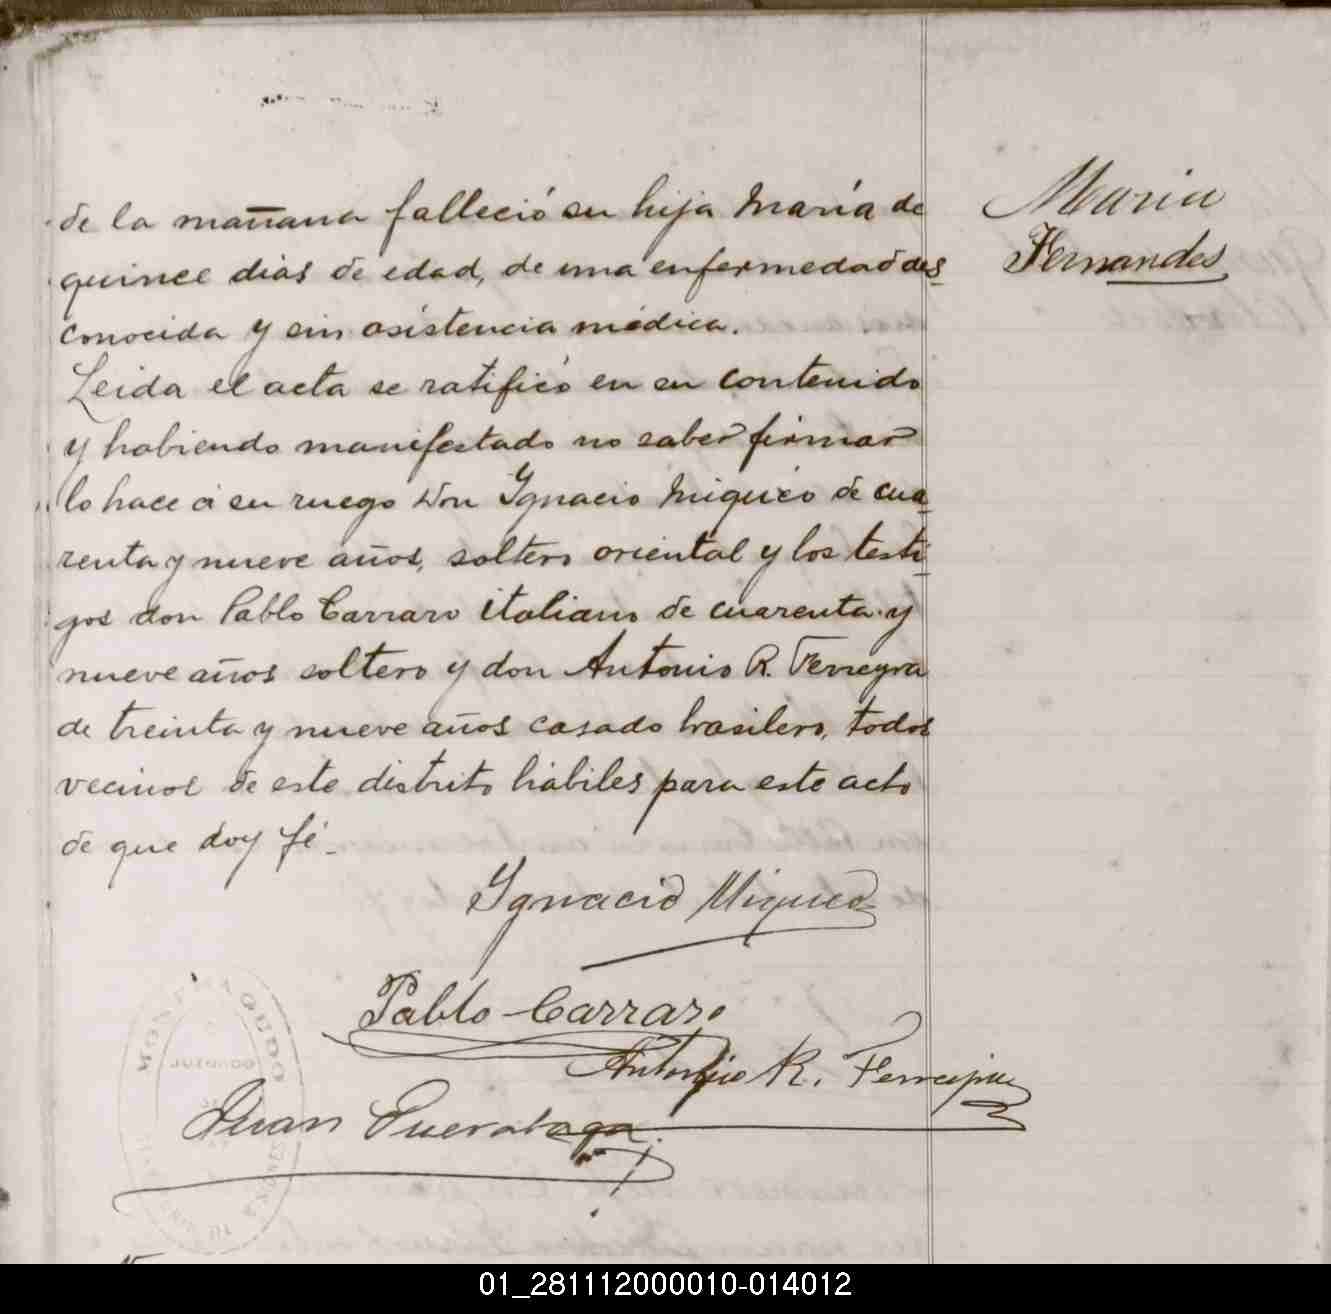 María
Fernandes
de la mañana falleció su hija María de
quince dias de edad, de una enfermedad des-
conocida y sin asistencia médica.
Leida el acta se ratificó en su contenido
y habiendo manifestado no saber firmar
lo hace á su ruego Don Ignacio Miqueo de cua-
renta y nueve años, soltero oriental y los testi-
gos don Pablo Carraro italiano de cuarenta y
nueve años soltero y don Antonio R. Ferreyra
de treinta y nueve años casado brasilero, todos
vecinos de este distrito hábiles para este acto
de que doy fé.
Ignacio Miqueo
Pablo Carraro
Antonio R. Ferreyra
Juan
01_281112000010-014012